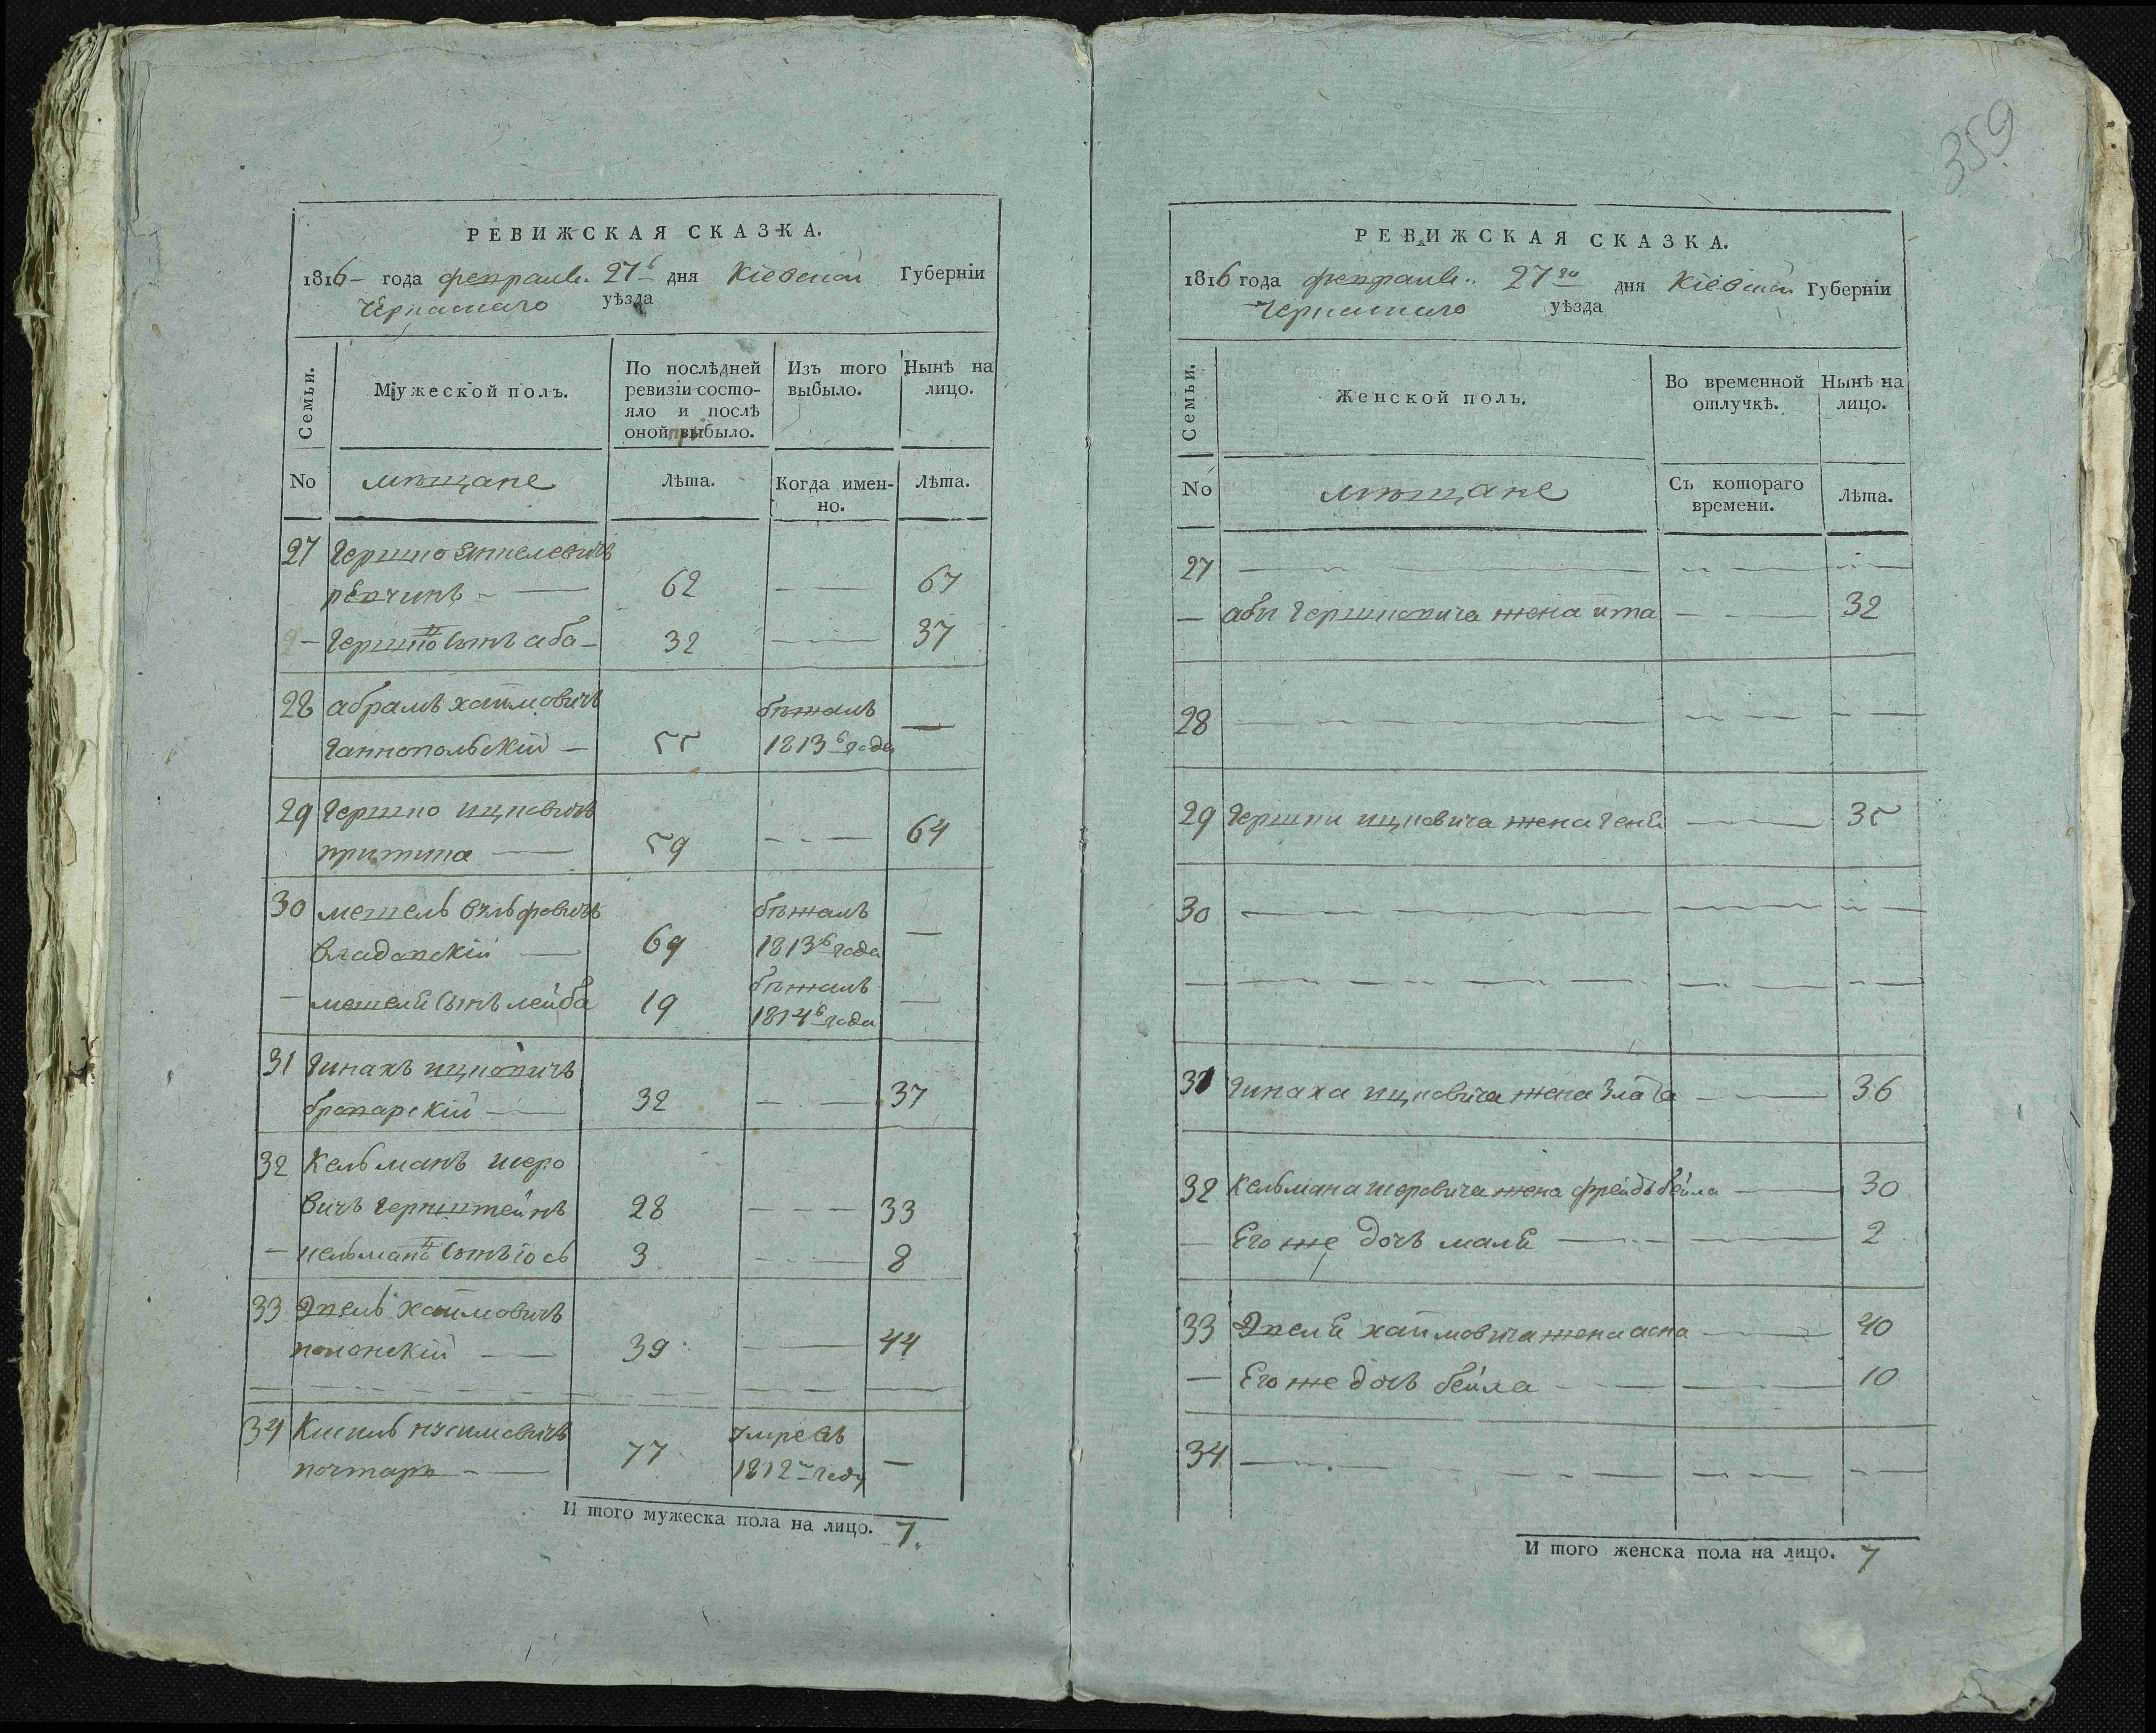 359
РЕВИЖСКАЯ СКАЗКА.
1816 года февраля 27 дня Кіевской Губерніи
Черкаскаго уѣзда
Семьи.
Мужеской полъ.
По послѣдней ревизіи состо-
яло и послѣ
оной выбыло.
Изъ того выбыло.
Нынѣ на лицо.
No мѣщане Лѣта. Когда имен-
но. Лѣта.
27 Гершко
62 — 67
— Гершка сынъ аба — 32 — 37
28 абрамъ хаимовичъ бѣжалъ
Ганнопольскій — 55 1813 года —
29 Гершко ицковичъ
59 — 64
30 мешель вульфовичъ бѣжалъ
69 1813 года —
— мешеля сынъ лейба 19 бѣжалъ —
1814 года
31 Гинахъ ицковичъ
32 — 37
32 Кельманъ шеро
вичъ 28 — 33
— кельмана сынъ іось 3 — 8
33 хаимовичъ
39 — 44
34 умре въ
почтарь — 77 1812 году —
И того мужеска пола на лицо. 7.
РЕВИЖСКАЯ СКАЗКА.
1816 года февраля 27 го дня Кіевской Губерніи
Черкаскаго уѣзда
Семьи.
Женской полъ.
Во временной отлучкѣ.
Нынѣ на лицо.
No мѣщане Съ котораго времени. Лѣта.
27 —
— абы Гершковича жена ита — 32
28 —
29 Гершки ицковича жена Геня — 35
30 —
31 Гинаха ицковича жена Злата — 36
32 Кельмана шеровича жена фрейдъ бейла — 30
— Его же дочь маля — 2
33 хаимовича жена — 40
— Его же дочь бейла — 10
34 —
И того женска пола на лицо. 7